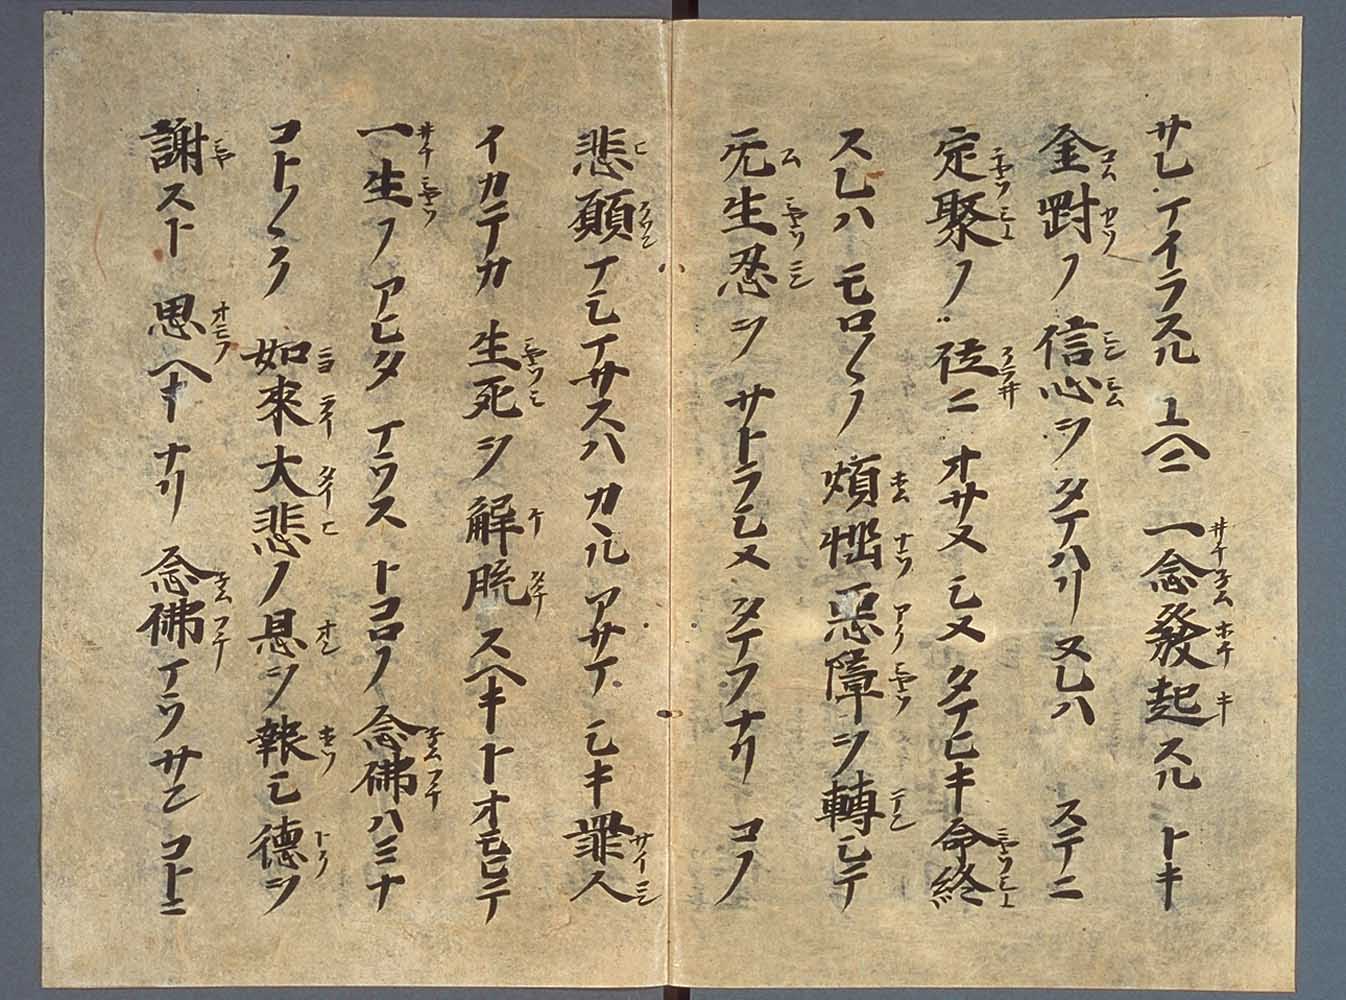 サレマイラスル ユヘニ 一念發起スル トキ
金剛ノ 信心ヲ タマハリ ヌレハ ステニ
定聚ノ 位ニ オサメ シメ タマヒキ 命終
スレハ モロ〱ノ 煩惱惡障ヲ 轉シテ
无生忍ヲ サトラシメ タマフナリ コノ
悲願 マシマサスハ カヽル アサマシキ 罪人
イカテカ 生死ヲ 解脱 スヘキト オモヒテ
一生ノ アヒタ マウス トコロノ 念佛ハ ミナ
コト〱ク 如來大悲ノ 恩ヲ 報シ 德ヲ
謝スト 思ヘキナリ 念佛マウサン コトニ